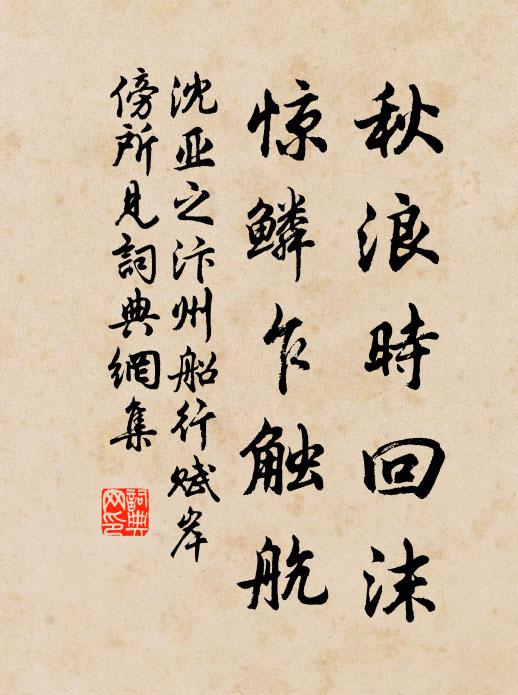 秋浪時回沫
惊鱗乍触航
沈亚之汴州船行赋岸
傍所見詞典網集
詞典網印